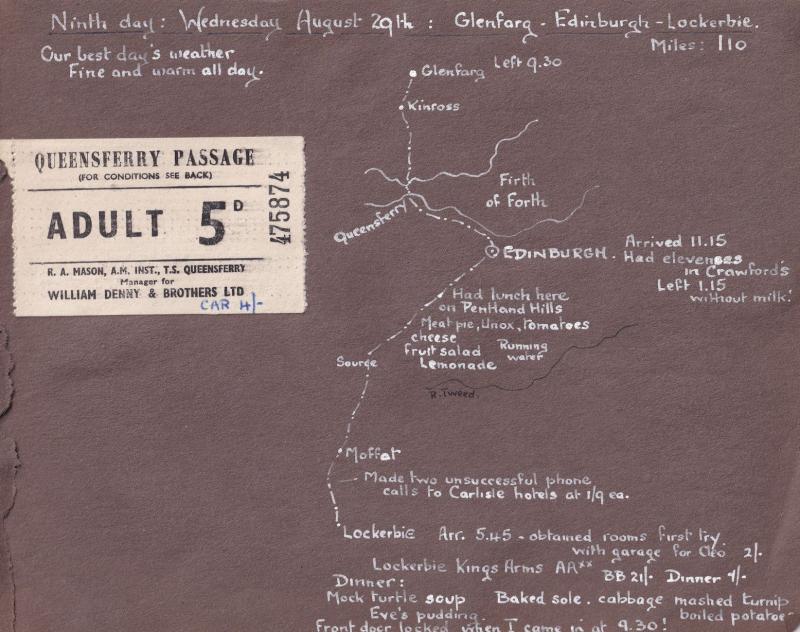 Ninth day: Wednesday August 29th: Glenfarg - Edinburgh - Lockerbie.
Miles: 110
Our best day's weather
Fine and warm all day.
Glenfarg Left 9.30
Kinross
QUEENSFERRY PASSAGE
(FOR CONDITIONS SEE BACK)
ADULT 5D
475874
R. A. MASON, A.M. INST., T.S. QUEENSFERRY
Manager for
WILLIAM DENNY & BROTHERS LTD
CAR 4/-
Firth
of Forth
Queensferry
EDINBURGH. Arrived 11.15
Had elevenses
in Crawford's
Left 1.15
without milk!
Had lunch here
on Pentland Hills
Meat pie, Unox, tomatoes
cheese
Fruit salad
Lemonade
Running
water
Source
R. Tweed.
Moffat
Made two unsuccessful phone
calls to Carlisle hotels at 1/9 ea.
Lockerbie Arr. 5.45 - obtained rooms first try
with garage for Cleo 2/-
Lockerbie Kings Arms AA**
BB 21/- Dinner 7/-
Dinner:
Mock turtle soup Baked sole. cabbage mashed turnip
Eve's pudding. boiled potatoe
Front door locked when I came in at 9.30!